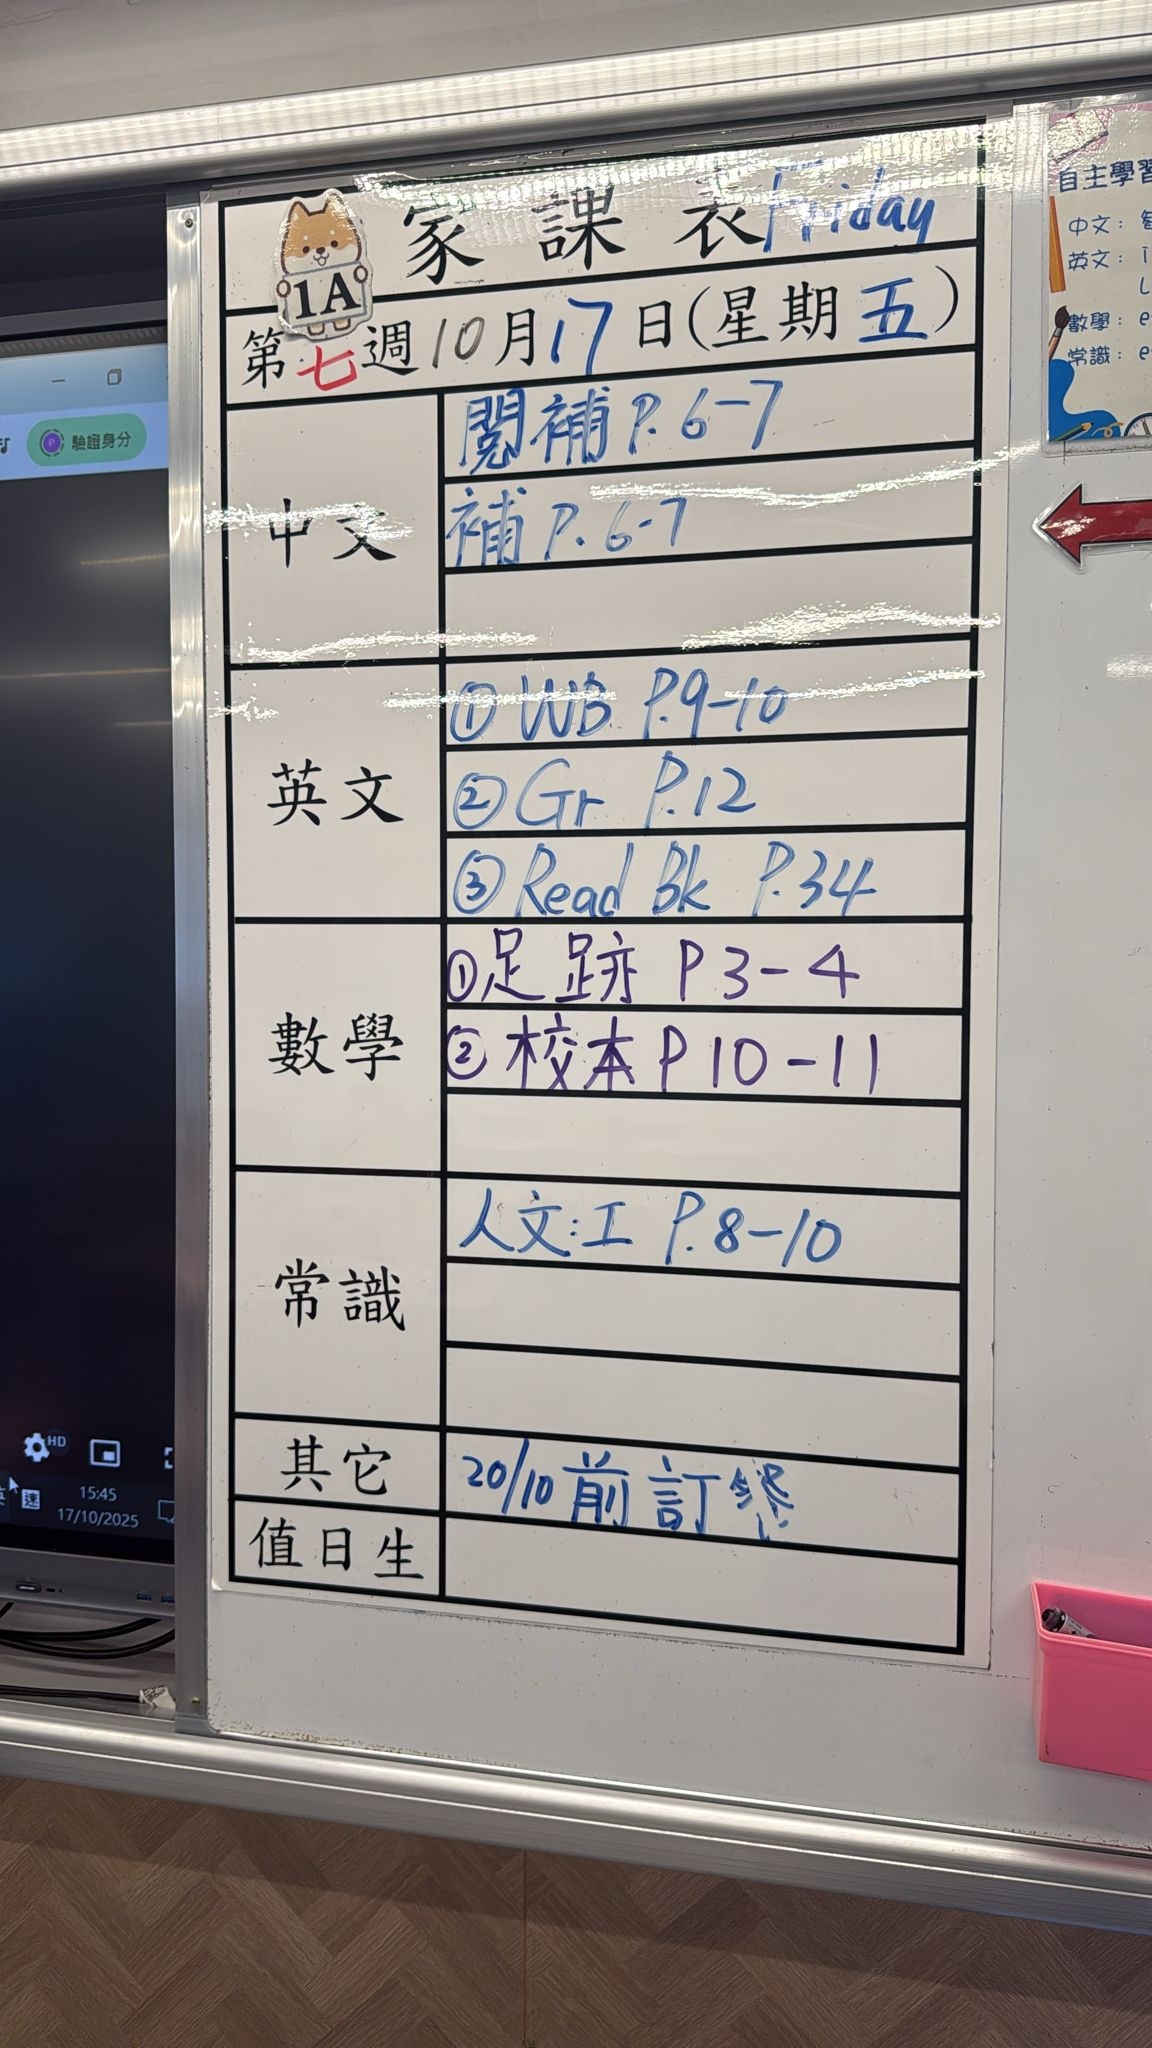 家課表 Friday
1A
第七週10月17日(星期五)
中文
閱補 P.6-7
補 P.6-7
英文
① WB P.9-10
② Gr P.12
③ Read Bk P.34
數學
① 足跡 P3-4
② 校本 P10-11
常識
人文:工 P.8-10
其它
20/10前訂餐
值日生
驗證身分
HD
英
速
15:45
17/10/2025
自主學習
中文:
英文: i
L
數學: e
常識: e